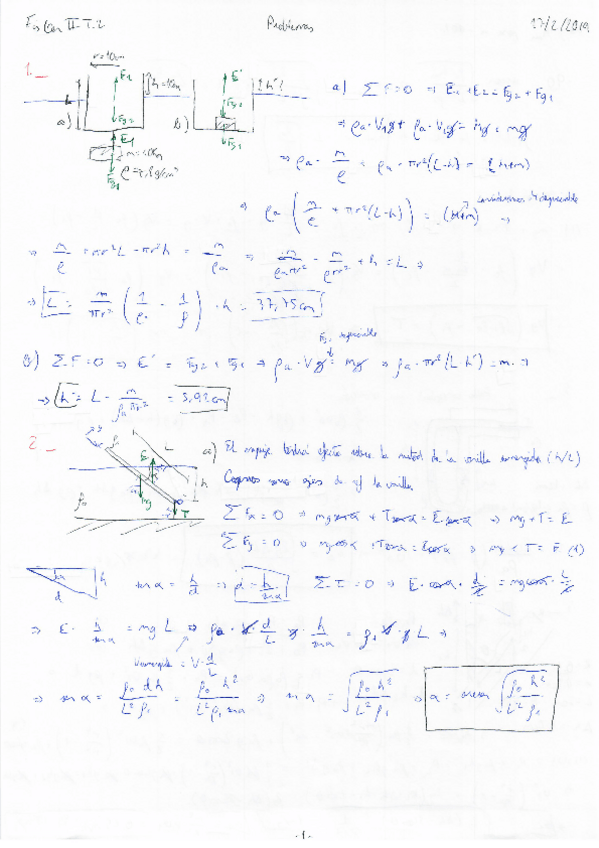 Física II-T.2 Problemas 17/2/2019
1._
r=10cm
E₂ h=10cm E' h'?
a) b) L
Fg₂ E₁ Fg₂ Fg₁
Fg₁ ρ=7,8g/cm³
a) ΣF=0 ⇒ E₁+E₂=Fg₂+Fg₁
⇒ ρa·V₁g+ρa·V₂g=Mg+mg
⇒ ρa·m/ρ + ρa·πr²(L-h) = (M+m)
⇒ ρa·(m/ρ + πr²(L-h)) = (M+m) ⇒
consideramos M despreciable
⇒ m/ρ + πr²L - πr²h = m/ρa ⇒ m/ρaπr² - m/ρπr² + h = L ⇒
⇒ L = m/πr² (1/ρa - 1/ρ) + h = 37,75cm
Fg₂ despreciable
b) ΣF=0 ⇒ E' = Fg₂+Fg₁ ⇒ ρa·Vg = mg ⇒ ρa·πr²(L-h') = m ⇒
⇒ h' = L - m/ρaπr² = 5,92cm
2._
ρ₁ L E h α mg T ρ₀
a) El empuje tendrá efecto sobre la mitad de la varilla sumergida (h/2)
Cogemos como ejes de ref la varilla.
ΣFx = 0 ⇒ mg sen α + T sen α = E sen α ⇒ mg+T = E
ΣFy = 0 ⇒ mg cos α + T cos α = E cos α ⇒ mg+T = E (1)
d h
sen α = h/d ⇒ d = h/sen α ΣT=0 ⇒ E·cos α·d/2 = mg cos α·L/2
⇒ E·h/sen α = mg L ⇒ ρ₀·V·d/L g·h/sen α = ρ₁·V·g L ⇒
Vsumergido = V·d/L
⇒ sen α = ρ₀ d h/L² ρ₁ = ρ₀ h²/L² ρ₁ sen α ⇒ sen α = √(ρ₀ h²/L² ρ₁) ⇒ α = arcsen √(ρ₀ h²/L² ρ₁)
-1-